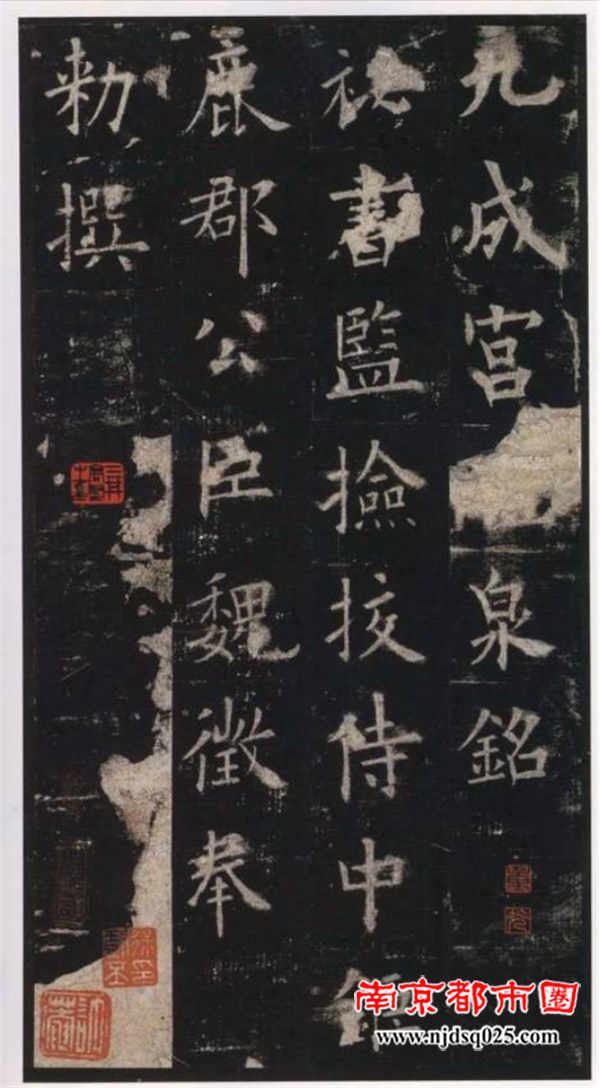 九成宮泉銘
祕書監撿挍侍中鉅
鹿郡公臣魏徵奉
勅撰
南京都市圈
www.njdsq025.com